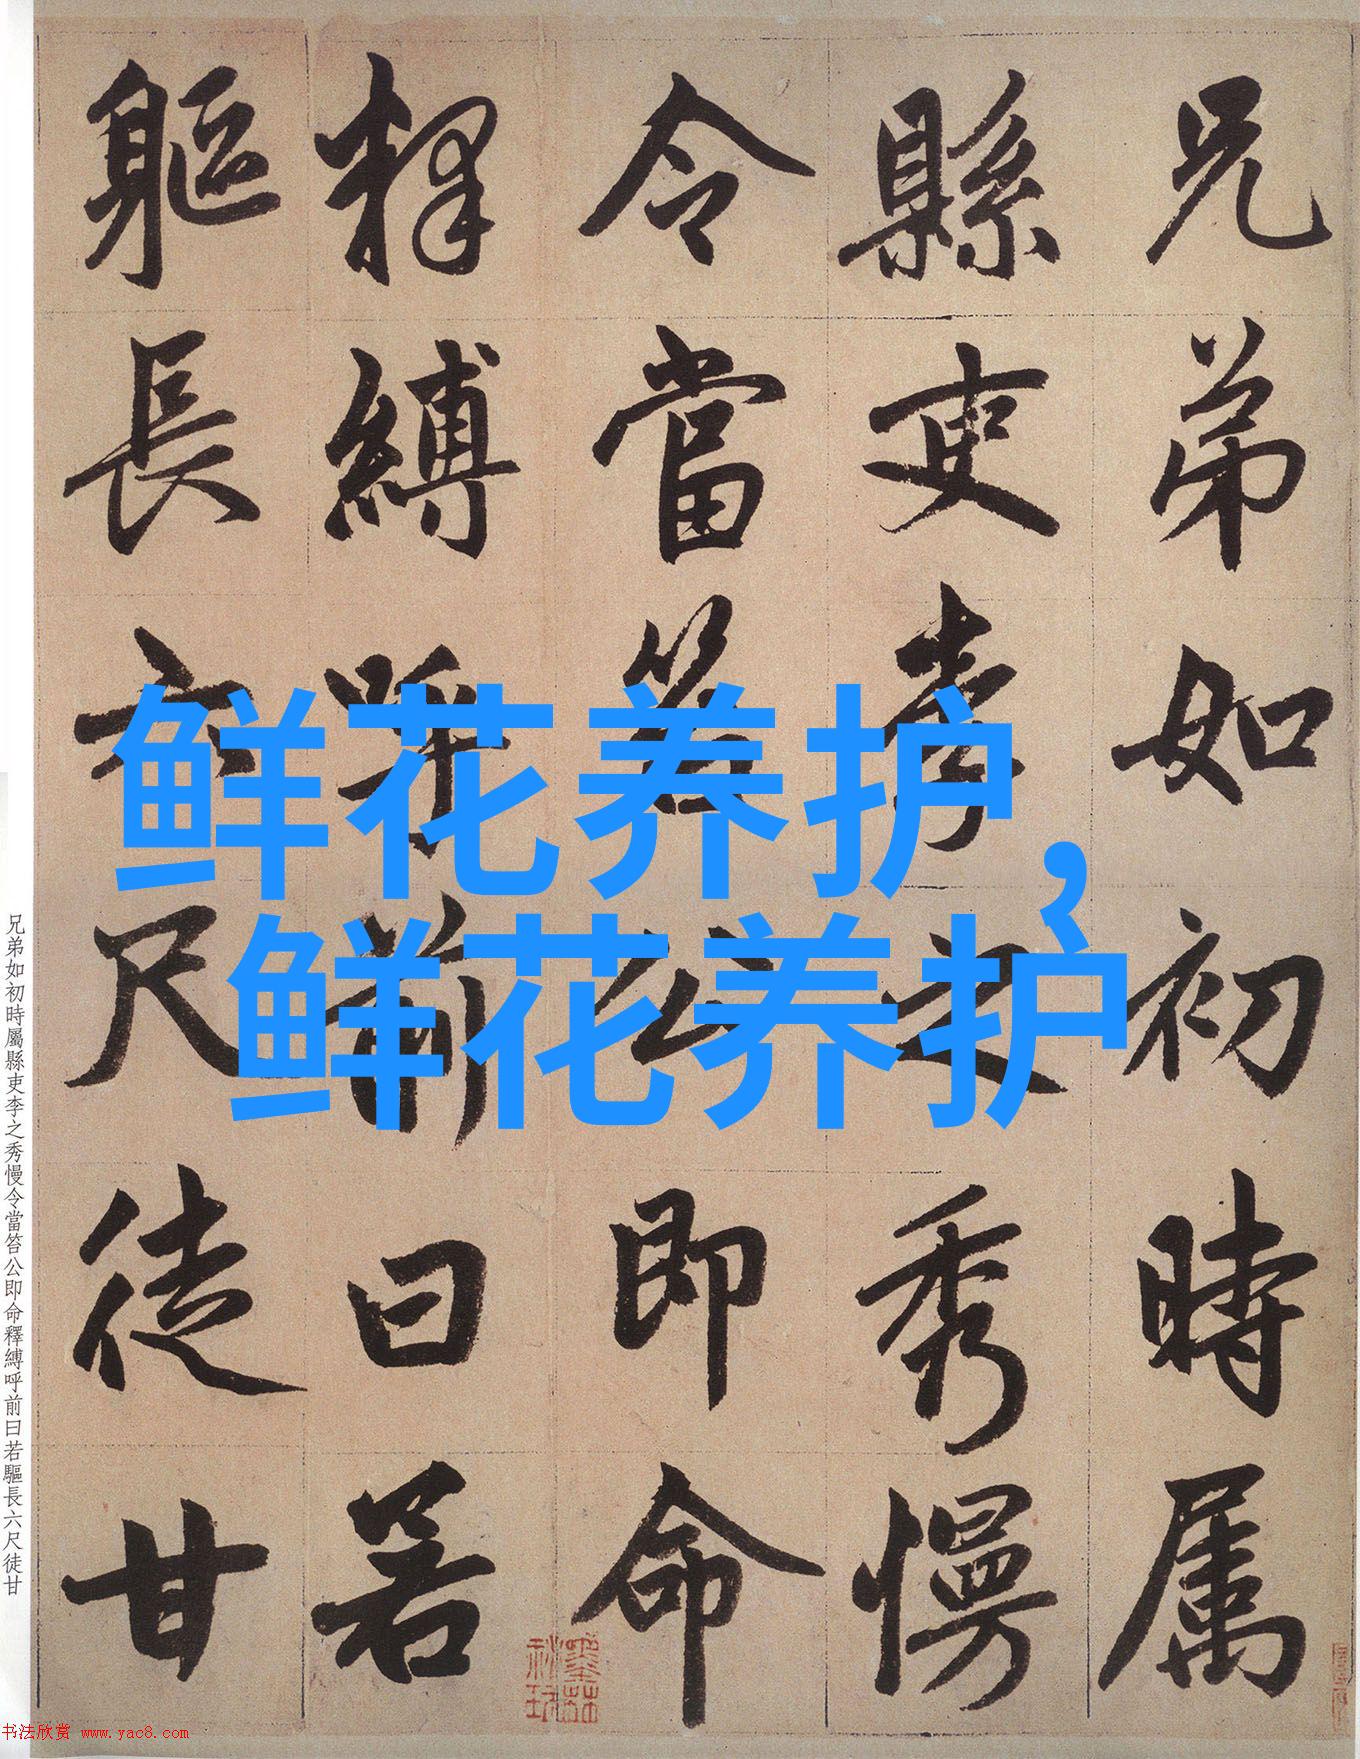 兄弟如初時属
縣吏李之秀慢
令當笞公即命
釋縛呼前曰若
軀長六尺徒甘
鲜花养护,
鲜花养护
兄弟如初時屬縣吏李之秀慢令當笞公即命釋縛呼前曰若驅長六尺徒甘
书法欣赏 www.yac8.com